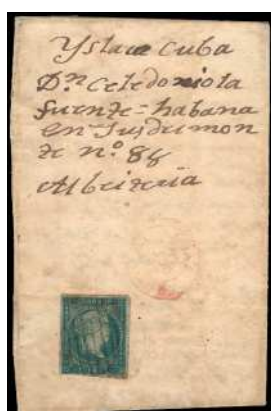 Ysla de Cuba
Dn Celedonio la
fuente = habana
en Jusdemon
te nº 88
Albeiteria